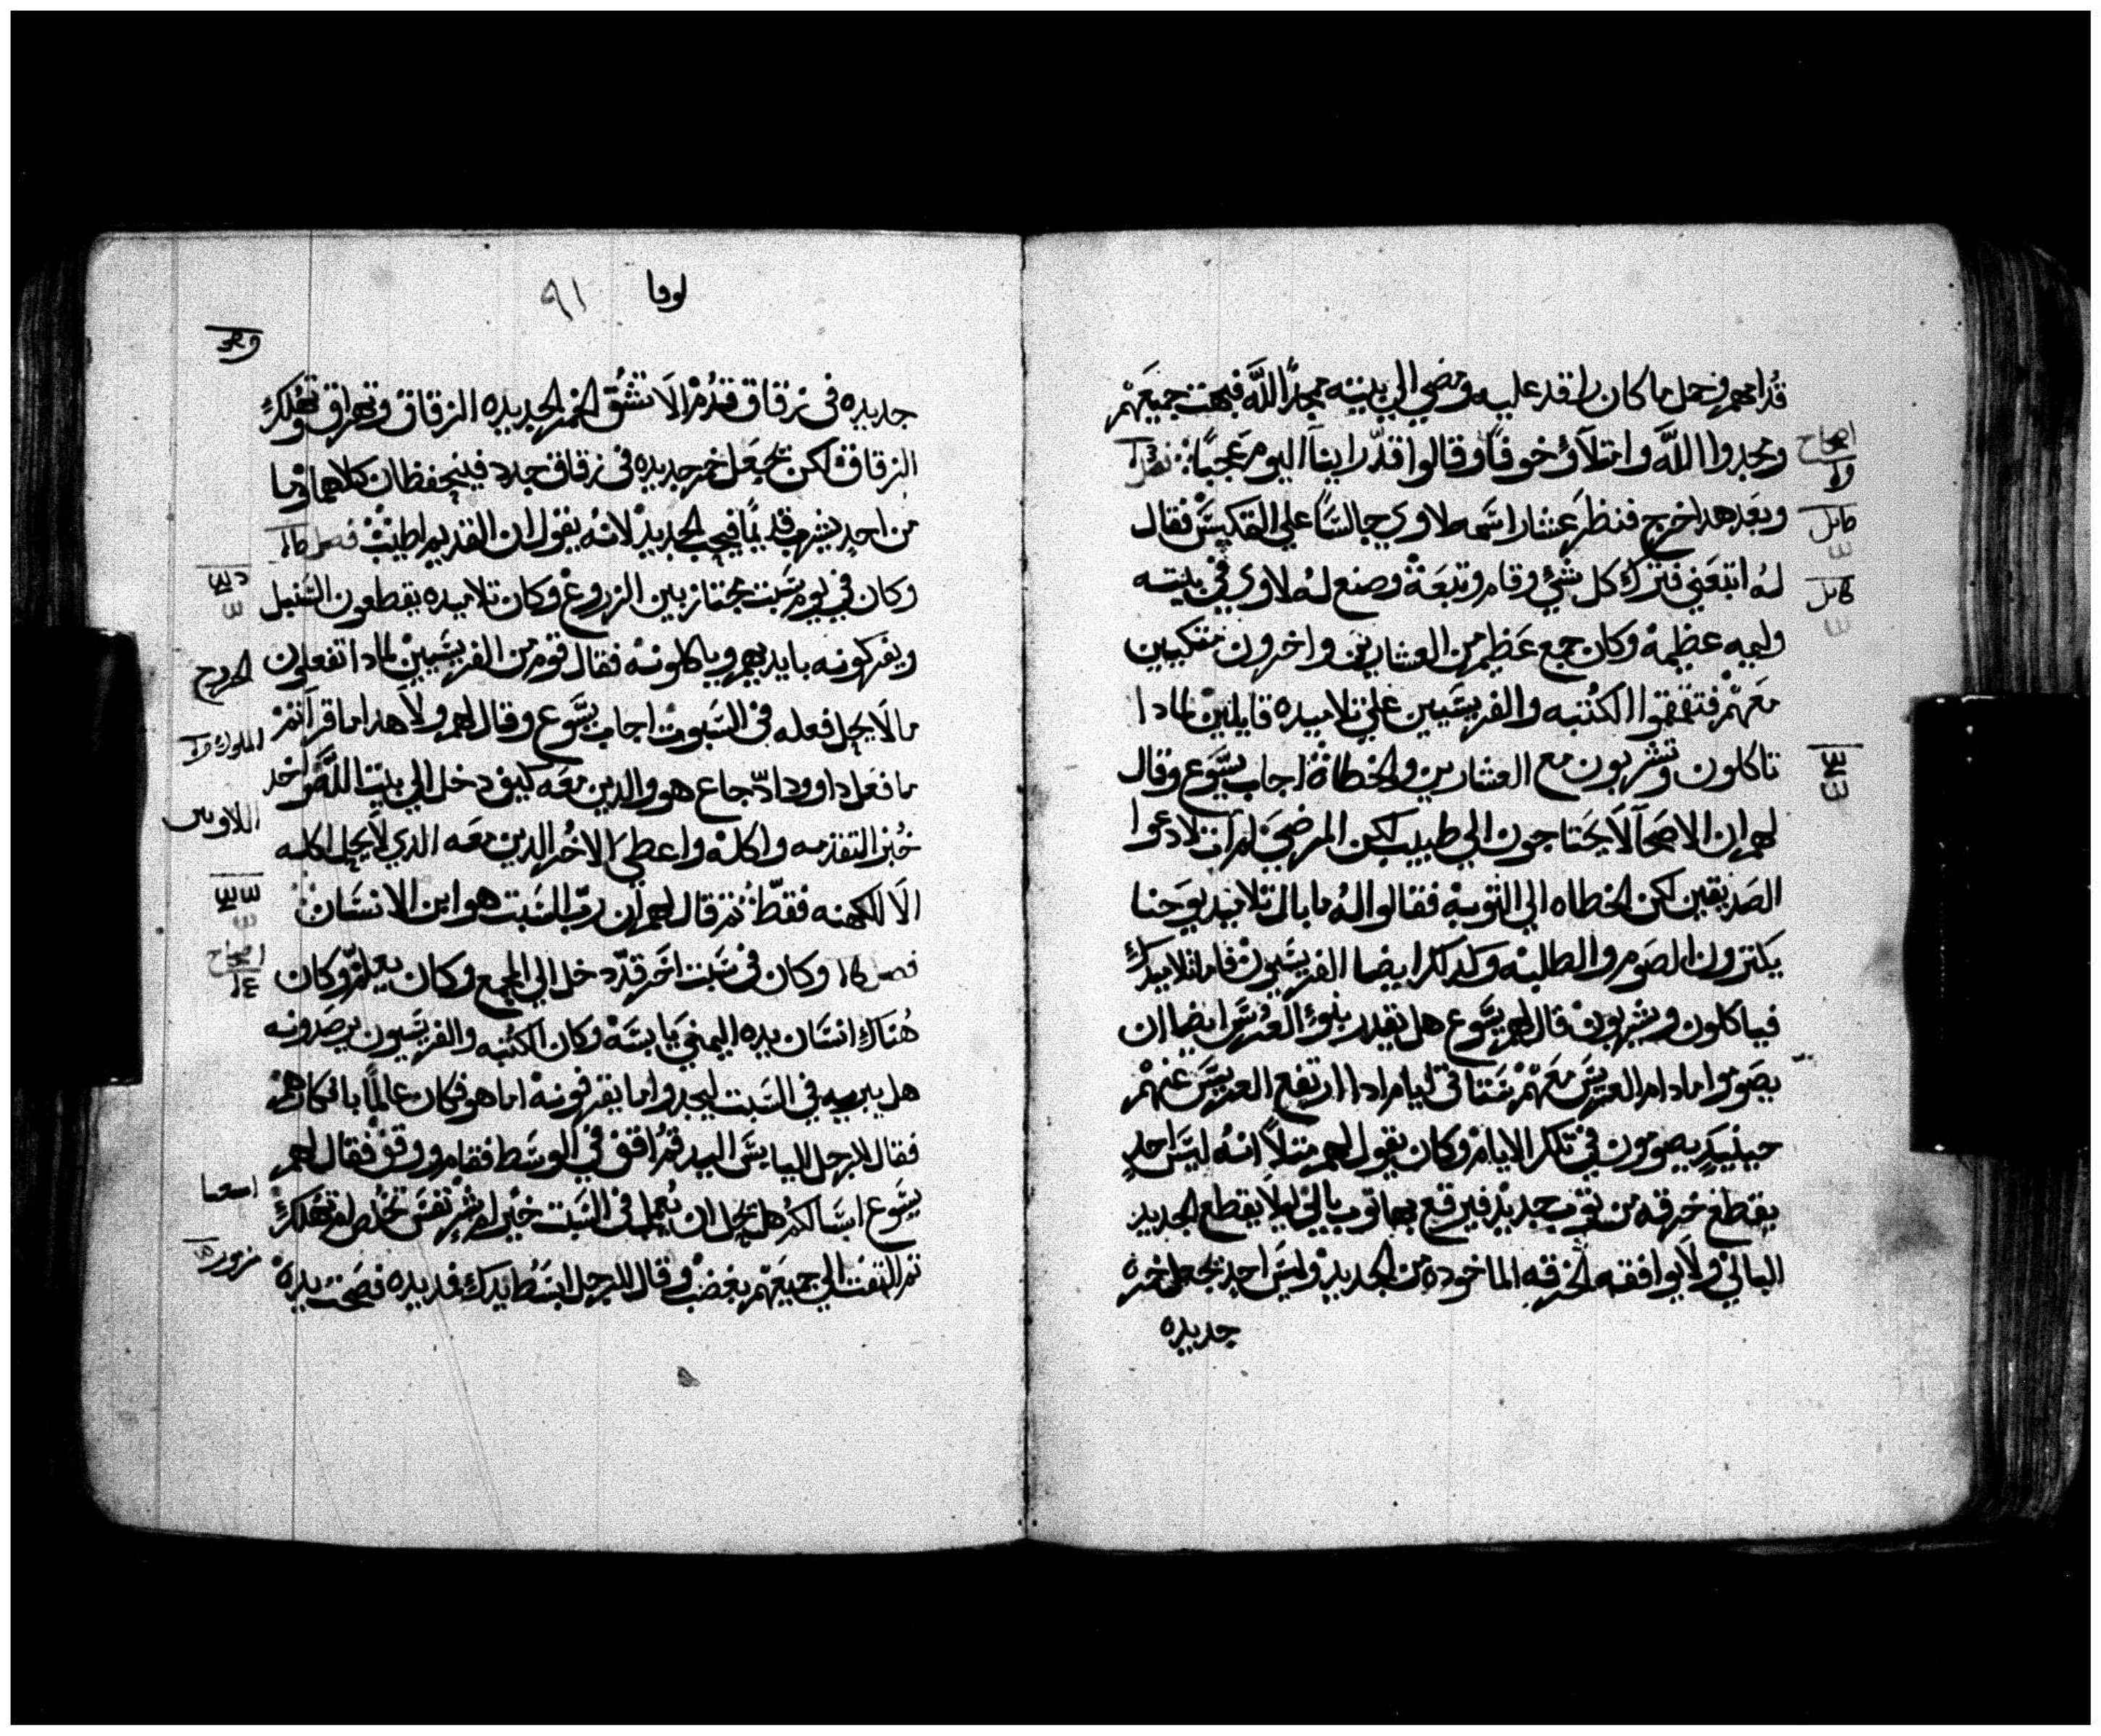 قدامهم وحمل ما كان راقد عليه ومضي الي بيته ممجدًا اللَّه فبهت جميعَهمْ
ومجدوا اللَّه وامتلاؤ خوفًا وقالوا قدّ راينا اليوم عَجبًا
وبعَد هدا خرج فنظرَ عشارا اسَمه لاوي جالسًا علي التكيسَ فقال
لهُ اتبعَني فترك كل شيْ وقام وتبعَهْ وصنع لهُ لاوي في بيته
وليمه عظيمهْ وكان جمع عَظيم من العشارين واخرون متكيين
معَهمْ فتقمقموا الكتبه والفريسَيين علي تلاميده قايلينْ لمادا
تاكلون وتشربون مع العشارين والخطاهْ اجاب يسَوع وقال
لهم ان الاصحآ لَا يحَتاجون الي طبيب لكن المرضيَ لم ات لادعوا
الصَديقين لكن الخطاه الي التوبهْ فقالوا لهُ ما بال تلاميد يوحَنا
يكترون الصَوم والطلبهْ وكدلك ايضا الفريسَيونْ فاما تلاميدك
فياكلون ويشربونْ قال لهم يسَوع هل تقدر بنوا العُرسَ ايضا ان
يصَوموا ما دام العريسَ معَهمْ سَتاتي ايام ادا ارتفع العريسَ عنهمْ
حينيدٍ يصومون في تلك الايامْ وكان يقول لهم متلاً انهُ ليسَ احدٍ
يقطعَ خرقه من توبٍ جديدْ فيرقع بها توب بالي ليلَا يقطع الجديد
البالي ولَا يوافقه الخرقه الماخوده من الجديدْ وليسَ احد يجعل خمره
جديده
لوقا ٩١
جديده في زقاق قدُمْ الَا تشُق الخمر الجديده الزقاق وتهراق وتهُلك
الزقاقْ لكن تجعَل خمر جديده في زقاق جدد فينحفظان كلاهما وما
من احدٍ يشرب قديمًا فيحب الجديدْ لانهُ يقول ان القديم اطيبْ
وكان في يوم سَبت مجتاز بين الزروع وكان تلاميده يقطعون السَنبل
ويفركونه بايديهم وياكلونهْ فقال قوم من الفريسَيينْ لمادا تفعلون
ما لَا يحل فعله في السَبوتْ اجاب يسَوع وقال لهم ولَا هدا ما قراتمْ
ما فعَل داوود ادّ جاع هو والدين معَه كيف دخل الي بيت اللَّه واخد
خُبز التقدمه واكلهْ واعطيَ الاخُر الدين معَه الدي لَا يحل اكله
الَا للكهنه فقطّ تم قال لهم ان ربّ السَبت هو ابن الانسَانْ
وكان في سَبت اخَر قدّ دخل الي المجمع وكان يعلمْ وكان
هُناك انسَان يده اليمنيَ يابسَهْ وكان الكتُبه والفريسَيون يرصَدونه
هل يبريه في السَبت ليجدوا ما يقرفونهْ اما هو فكان عالمًا بافكارهمْ
فقال للرجل اليابسَ اليد قمُ اقف في الوسَط فقام ووقفْ فقال لهم
يسَوع اسَالكمُ هل يحَل ان يُعمل في السَبت خيْر ام شرْ نفسَ تخُلص ام تهُلكْ
تم التفتَ الي جميعَهم بغضبْ وقال للرجل ابسَطُ يدك فمد يده فصَحت يدهْ
الخروج
اللاويين
اصحاح
اسعيا
مزمور